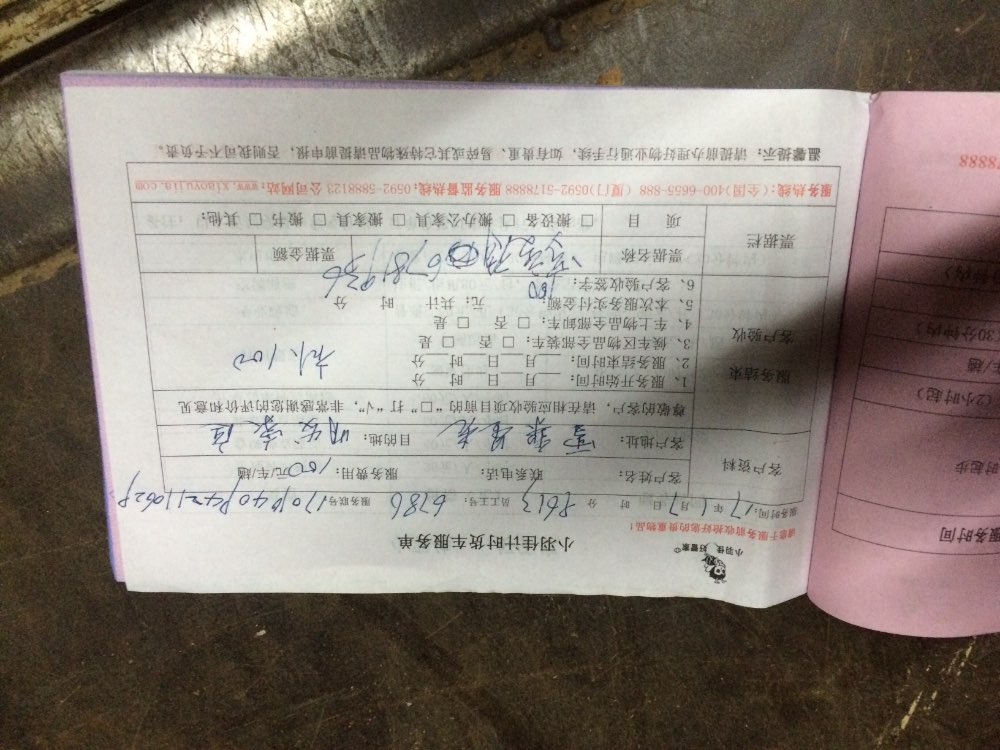 小羽佳 好管家
小羽佳计时货车服务单
请您于服务前收捡好您的贵重物品！
服务时间: 17 年 月 17 日 时 分 员工工号: 6786 服务联号:
客户资料
客户姓名: 联系电话: 服务费用: 100元/车/趟
客户地址: 目的地:
尊敬的客户, 请在相应验收项目前的“□”打“√”, 非常感谢您的评价和意见
服务结束
客户验收
1、服务开始时间: 月 日 时 分
2、服务结束时间: 月 日 时 分
3、候车区物品全部装车: □ 否 □ 是
4、车上物品全部卸车: □ 否 □ 是
5、本次服务实付金额: 100 元; 共计 时 分
6、客户验收签字:
票据栏
票据名称 票据金额
项 目 □ 搬设备 □ 搬办公家具 □ 搬家具 □ 搬书 □ 其他:
服务热线:(全国)400-6655-888 (厦门)0592-5178888 服务监督热线: 0592-5888123 公司网站: www.xiaoyujia.com
温馨提示: 请提前办理好物业通行手续, 如有贵重、易碎或其它特殊物品请提前申报, 否则我司不予负责。
服务时间
时起步
(2小时起)
车/趟
(30分钟内)
钟内)
8888